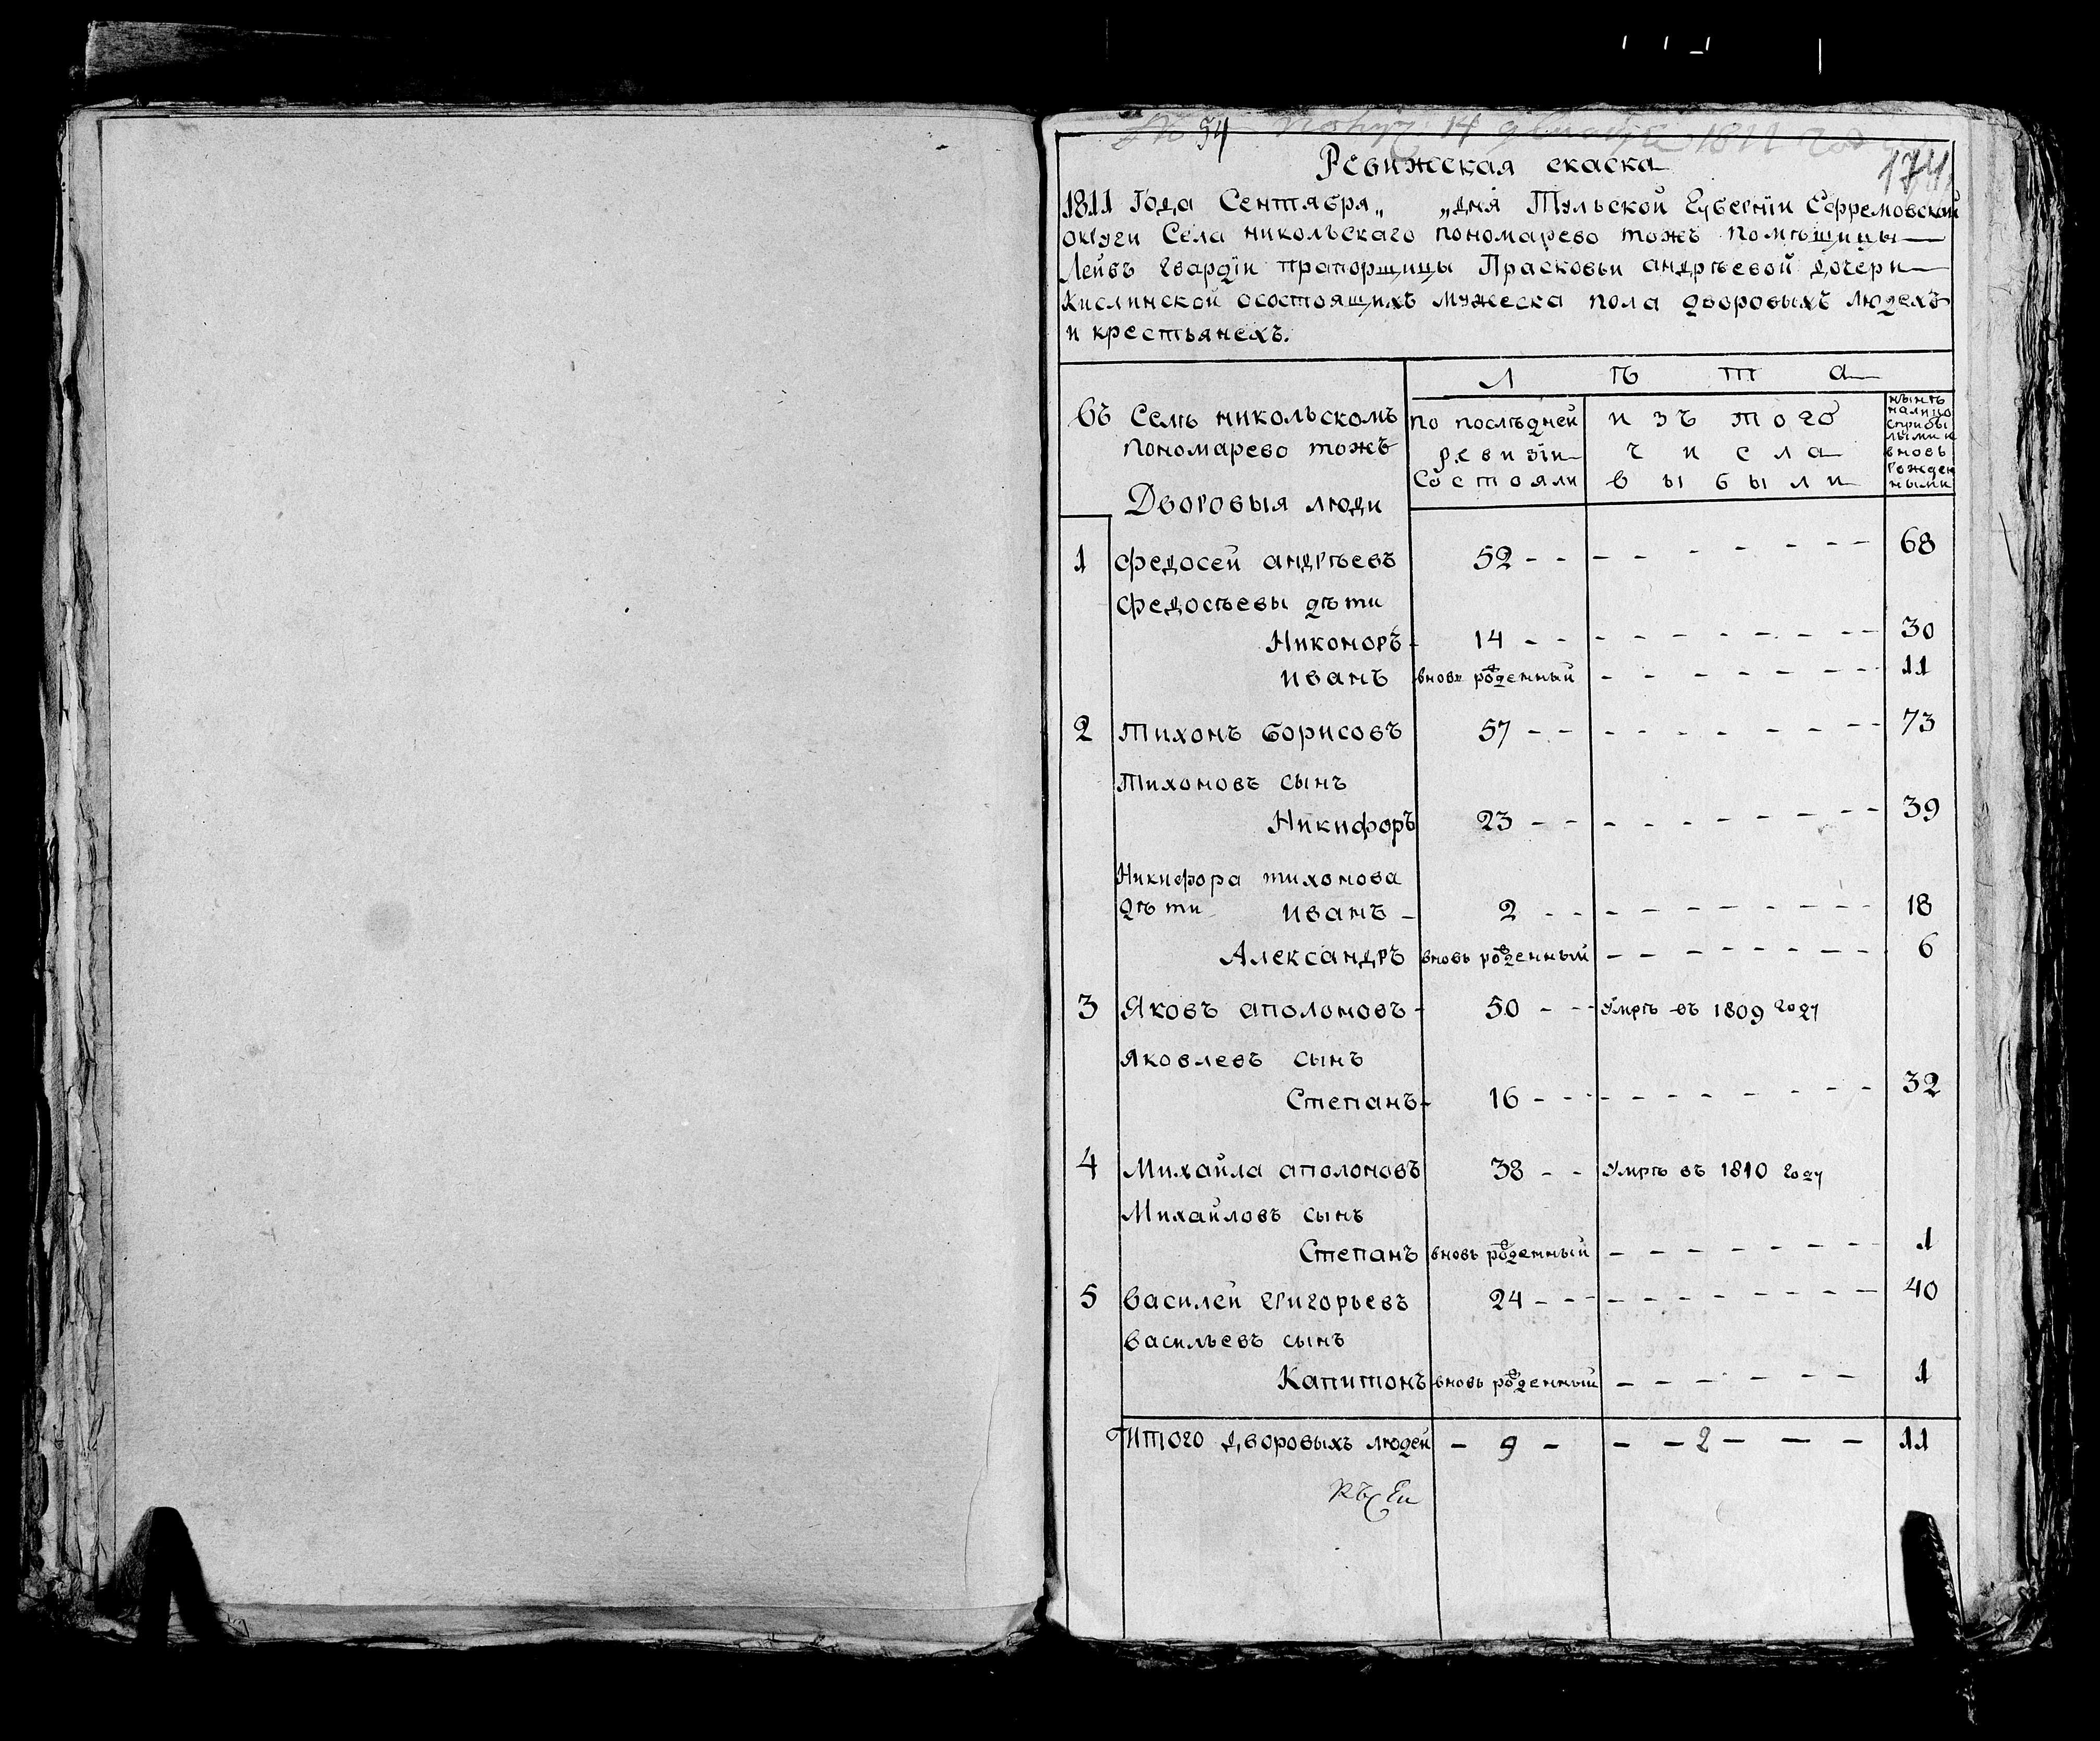 № 54 Получ. 14 декабря 1811 года
174
Ревижская скаска
1811 Года Сентября „ „дня Тульской Губернїи Ефремовской
округи Села никольскаго пономарево тожъ помѣщицы
Лейвъ гвардїи прапорщицы Прасковьи андрѣевой дочери
Кислинской осостоящихъ мужеска пола дворовыхъ людехъ
и крестьянехъ.
Л ѣ т а
въ Селѣ никольскомъ
пономарево тожъ
Дворовыя люди
по послѣдней
ревизїи
Состояли
изъ того
числа
выбыли
нынѣ
налицо
сприбы
лыми и
вновь
рожден
ными
1 Федосей андрѣевъ 52 - - - - - - - - - 68
Федосѣевы дѣти
Никоноръ - 14 - - - - - - - - - - 30
иванъ вновь рожденный - - - - - - - - 11
2 Тихонъ борисовъ 57 - - - - - - - - - - 73
Тихоновъ сынъ
Никифоръ 23 - - - - - - - - - - 39
Никифора тихонова
дѣти иванъ - 2 - - - - - - - - - - 18
Александръ вновь рожденный - - - - - - - - 6
3 Яковъ аполоновъ - 50 - - умрѣ въ 1809 году
Яковлевъ сынъ
Степанъ - 16 - - - - - - - - - - 32
4 Михайла аполоновъ 38 - - умрѣ въ 1810 году
Михайловъ сынъ
Степанъ вновь рожденный - - - - - - - - 1
5 Василей григорьевъ 24 - - - - - - - - - - 40
Васильевъ сынъ
Капитонъ вновь рожденный - - - - - - - 1
Итого дворовыхъ людей - 9 - - - 2 - - - 11